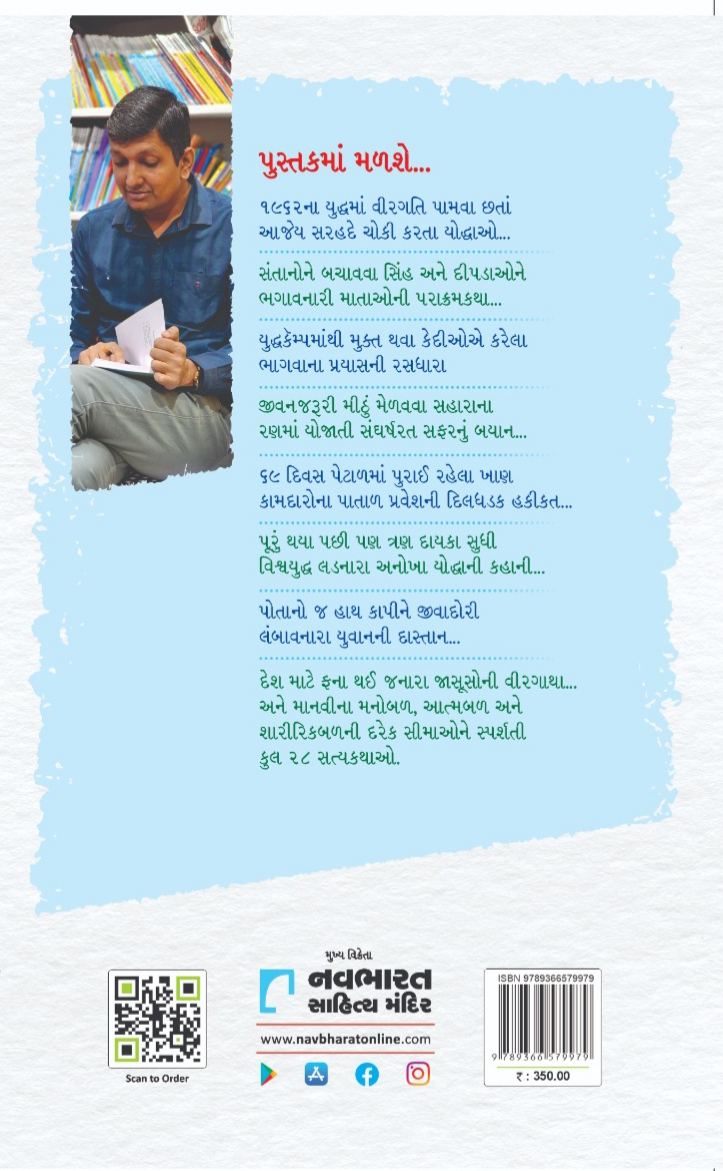 પુસ્તકમાં મળશે...
૧૯૬૨ના યુદ્ધમાં વીરગતિ પામવા છતાં
આજેય સરહદે ચોકી કરતા યોદ્ધાઓ...
સંતાનોને બચાવવા સિંહ અને દીપડાઓને
ભગાવનારી માતાઓની પરાક્રમકથા...
યુદ્ધકૅમ્પમાંથી મુક્ત થવા કેદીઓએ કરેલા
ભાગવાના પ્રયાસની રસધારા
જીવનજરૂરી મીઠું મેળવવા સહારાના
રણમાં યોજાતી સંઘર્ષરત સફરનું બયાન...
૬૯ દિવસ પેટાળમાં પુરાઈ રહેલા ખાણ
કામદારોના પાતાળ પ્રવેશની દિલધડક હકીકત...
પૂરું થયા પછી પણ ત્રણ દાયકા સુધી
વિશ્વયુદ્ધ લડનારા અનોખા યોદ્ધાની કહાની...
પોતાનો જ હાથ કાપીને જીવાદોરી
લંબાવનારા યુવાનની દાસ્તાન...
દેશ માટે ફના થઈ જનારા જાસૂસોની વીરગાથા...
અને માનવીના મનોબળ, આત્મબળ અને
શારીરિકબળની દરેક સીમાઓને સ્પર્શતી
કુલ ૨૮ સત્યકથાઓ.
Scan to Order
મુખ્ય વિક્રેતા
નવભારત
સાહિત્ય મંદિર
www.navbharatonline.com
ISBN 9789366579979
9 789366 579979
₹ : 350.00